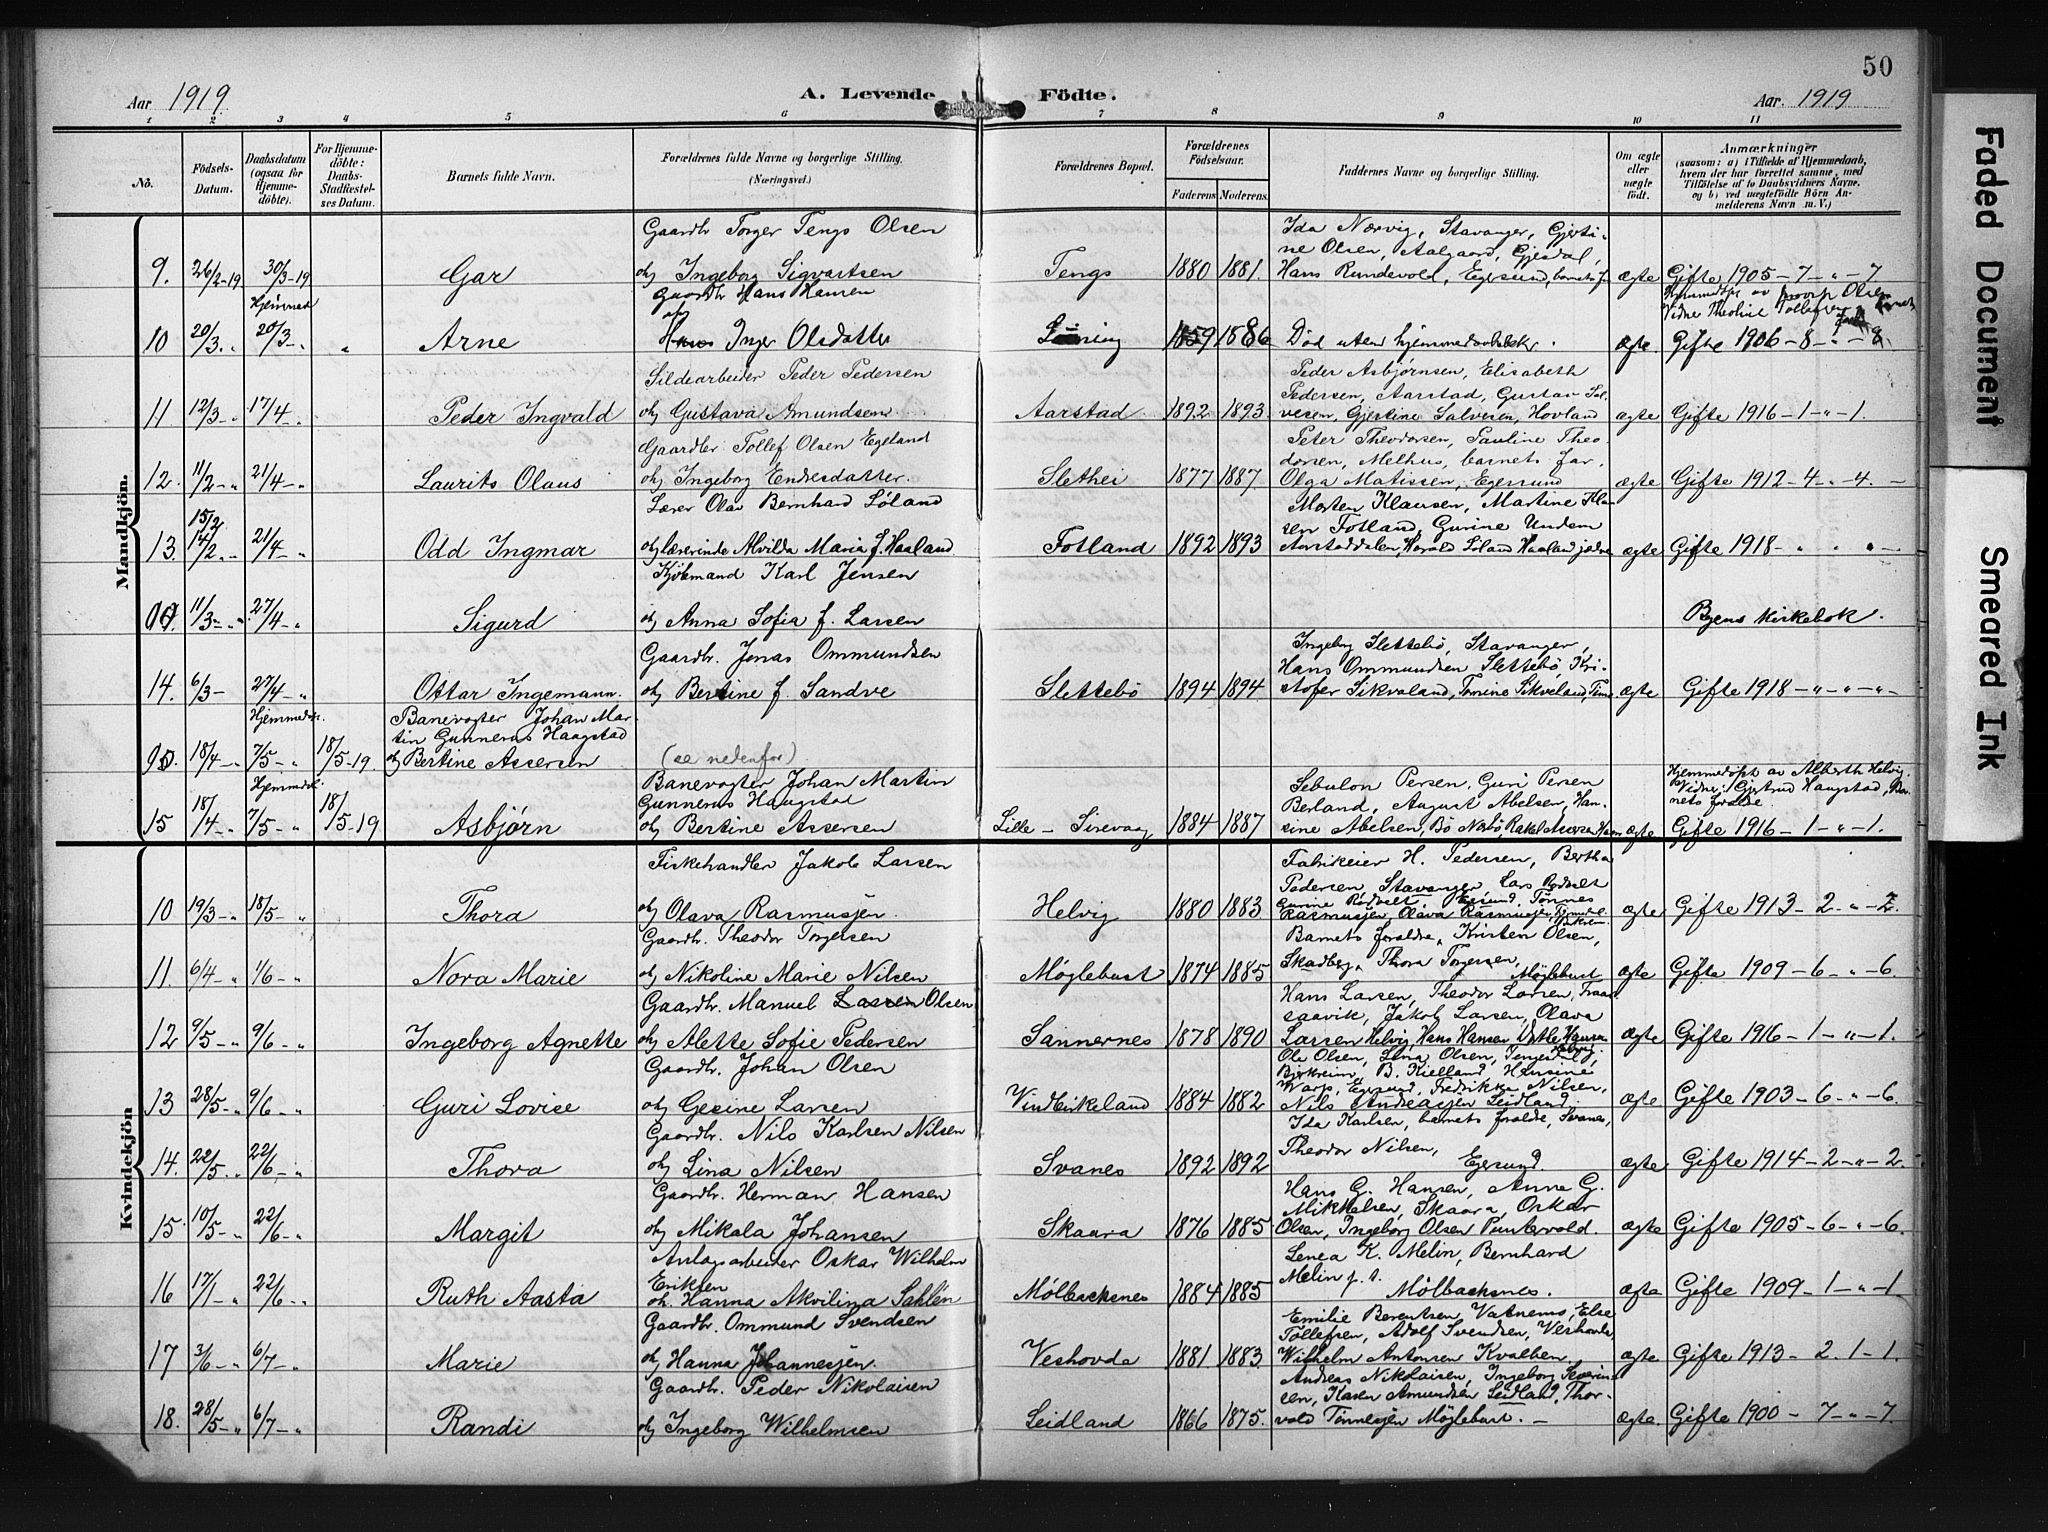 50
Aar 1919. A. Levende Födte. Aar. 1919
1 2 3 4 5 6 7 8 9 10 11
No.
Födsels-Datum.
Daabsdatum (ogsaa for Hjemme-döbte).
For Hjemme-döbte: Daabs-Stadfæstel-ses Datum.
Barnets fulde Navn.
Forældrenes fulde Navne og borgerlige Stilling.
(Næringsvei.)
Forældrenes Bopæl.
Forældrenes Födselsaar.
Faderens Moderens.
Faddernes Navne og borgerlige Stilling.
Om ægte eller uægte födt.
Anmærkninger
(saasom: a) i Tilfælde af Hjemmedaab,
hvem der har forrettet samme, med
Tilföielse af to Daabsvidners Navne,
og b) ved uægtefödte Börn An-
melderens Navn m. V.)
Mandkjön.
Gaardbr Torger Tengs Olsen
Ida Nærvig, Stavanger, Gjerti-
ne Olsen, Aalgaard, Gjesdal,
9. 26/2-19 30/3-19 Gar og Ingeborg Sigvartsen Tengs 1880 1881. Hans Rundevold, Egersund, barnets f ægte Gifte 1905 - 7 - " - 7
Hjemmed
Gaardbr Hans Hansen
og
10 20/3 " 20/3 - " Arne Inger Olsdatter 1859 1886 Død uten hjemmedaab. ægte. Gifte 1906 - 8 - " - 8
Sildearbeider Peder Pedersen
Peder Asbjørnsen, Elisabeth
Pedersen, Aarstad, Gustav Sal-
11. 12/3 - " 17/4 - " Peder Ingvald og Gustava Amundsen Aarstad 1892 1893. vesen, Gjertine Salvesen, Hovland ægte Gifte 1916 - 1 - " - 1.
Gaardbr Tollef Olsen Egeland
Peter Theodorsen, Pauline Theo
dorsen, Melhus, barnets far,
12. 11/2 - " 21/4 - " Laurits Olaus og Ingeborg Endresdatter. Slethei 1877 1887. Olga Matissen, Egersund ægte Gifte 1912 - 4 - " - 4. -
Lærer Olav Bernhard Søland
Morten Klausen, Martine Kla
sen Fotland, Gurine Undem
15/2
13. 14/2 " 21/4 - " Odd Ingmar og lærerinde Alvilda Maria f. Haaland Fotland 1892 1893 Aarstaddalen, Harald Søland Haaland jædre ægte Gifte 1918 - " " " -
Kjøbmand Karl Jensen
11/3 - " 27/4 - " Sigurd og Anna Sofia f. Larsen Byens kirkebok.
Gaardbr. Jonas Ommundsen
Ingeborg Slettebø, Stavanger,
Hans Ommundsen Slettebø, Kri-
14. 6/3 - 27/4 - " Ottar Ingemann. og Bertine f. Sandve Slettebø 1894 1894 stofer Sikvaland, Tomine Sikveland, ægte Gifte 1918 - " - " - " -
Hjemmed.
Banevogter Johan Mar-
tin Gunnerus Haagstad
18/4 - " 7/5 - " 18/5-19. og Bertine Assersen (se nedenfor)
Hjemmed.
Banevogter Johan Martin
Gunnerus Haagstad
Sebulon Persen, Guri Persen
Berland, August Abelsen, Han-
Hjemmedøpt av Alberth Helvig.
Vidner: Gjertrud Haagstad, Bar-
nets foraldre.
15 18/4 - " 7/5 - " 18/5-19 Asbjørn og Bertine Assersen Lille - Sirevaag 1884 1887 sine Abelsen, Bö ægte Gifte 1916 - 1 - " - 1.
Kvindekjön
Fiskehandler Jakob Larsen
Fabrikeier H. Pedersen, Bertha
Pedersen, Stavanger, Lars Rødselt
Gurine Rødselt, Egersund, Tønnes
10 19/3 - " 18/5 - " Thora og Olava Rasmussen. Helvig 1880 1883 Rasmussen, Olava Rasmussen, ægte Gifte 1913 - 2 - " - 2.
Gaardbr. Theodor Torgersen
Barnets foraldre, Kristen Olsen,
Skadberg, Thora Torgersen,
11. 6/4 - " 1/6 - " Nora Marie og Nikoline Marie Nilsen Møglebust 1874 1885 Møglebust ægte Gifte 1909 - 6 - " - 6.
Gaardbr. Manuel Larsen Olsen
Hans Larsen, Theodor Larsen,
saavik, Jakob Larsen, Olava
12 9/5 - " 9/6 - " Ingeborg Agnette og Alette Sofie Pedersen Sannernes 1878 1890 Larsen Helvig, Hans Hansen, ægte Gifte 1916 - 1 - " - 1.
Gaardbr. Johan Olsen
Ole Olsen, Lina Olsen,
Bjerkreim, B. Kielland, Hansine
Warp, Egersund, Fredrikka Nilsen,
13 28/5 - " 9/6 - " Guri Lovise og Gesine Larsen Vindbirkeland 1884 1882 Nils Andreassen Seidland. ægte. Gifte 1903 - 6 - " - 6.
Gaardbr. Nils Karlsen Nilsen
Ida Karlsen, barnets foraldre, Svanes,
Theodor Nilsen,
14. 22/5 " 22/6 - " Thora og Lina Nilsen Svanes 1892 1892 Egersund. ægte Gifte 1914 - 2 - " - 2.
Gaardbr. Herman Hansen
Hans G. Hansen, Anne G.
Mikkelsen, Skaara, Oskar
15 10/5 - " 22/6 - " Margit og Mikala Johansen Skaara 1876 1885 Olsen, Ingeborg Olsen Puntervold. ægte Gifte 1905 - 6 - " - 6.
Anlægsarbeider Oskar Wilhelm
Eriksen
Lenea K. Melin, Bernhard
Melin p. t.
16 17/1 - " 22/6 - " Ruth Aasta og. Hanna Akvilina Sahlén Mølbacksnes 1884 1885 Mølbacksnes. ægte Gifte 1909 - 1 - " - 1.
Gaardbr. Ommund Svendsen
Emilie Berentsen, Vatnemo, Else
Tollefsen, Adolf Svendsen, Veshovda
17 3/6 - " 6/7 - " Marie og Hanna Johannessen. Veshovda 1881 1883. Wilhelm Antonsen Kvalben. ægte Gifte 1913 - 2. 1 - 1.
Gaardbr. Peder Nikolaisen
Andreas Niklaisen, Ingeborg Severin
sen, Karen Amundsen Seidland, Thor-
18. 28/5 - " 6/7 - " Randi og Ingeborg Wilhelmsen Seidland 1866 1875. vald Tønnessen Møglebust. - ægte. Gifte 1900 - 7 - " - 7.
Faded Document
Smeared Ink